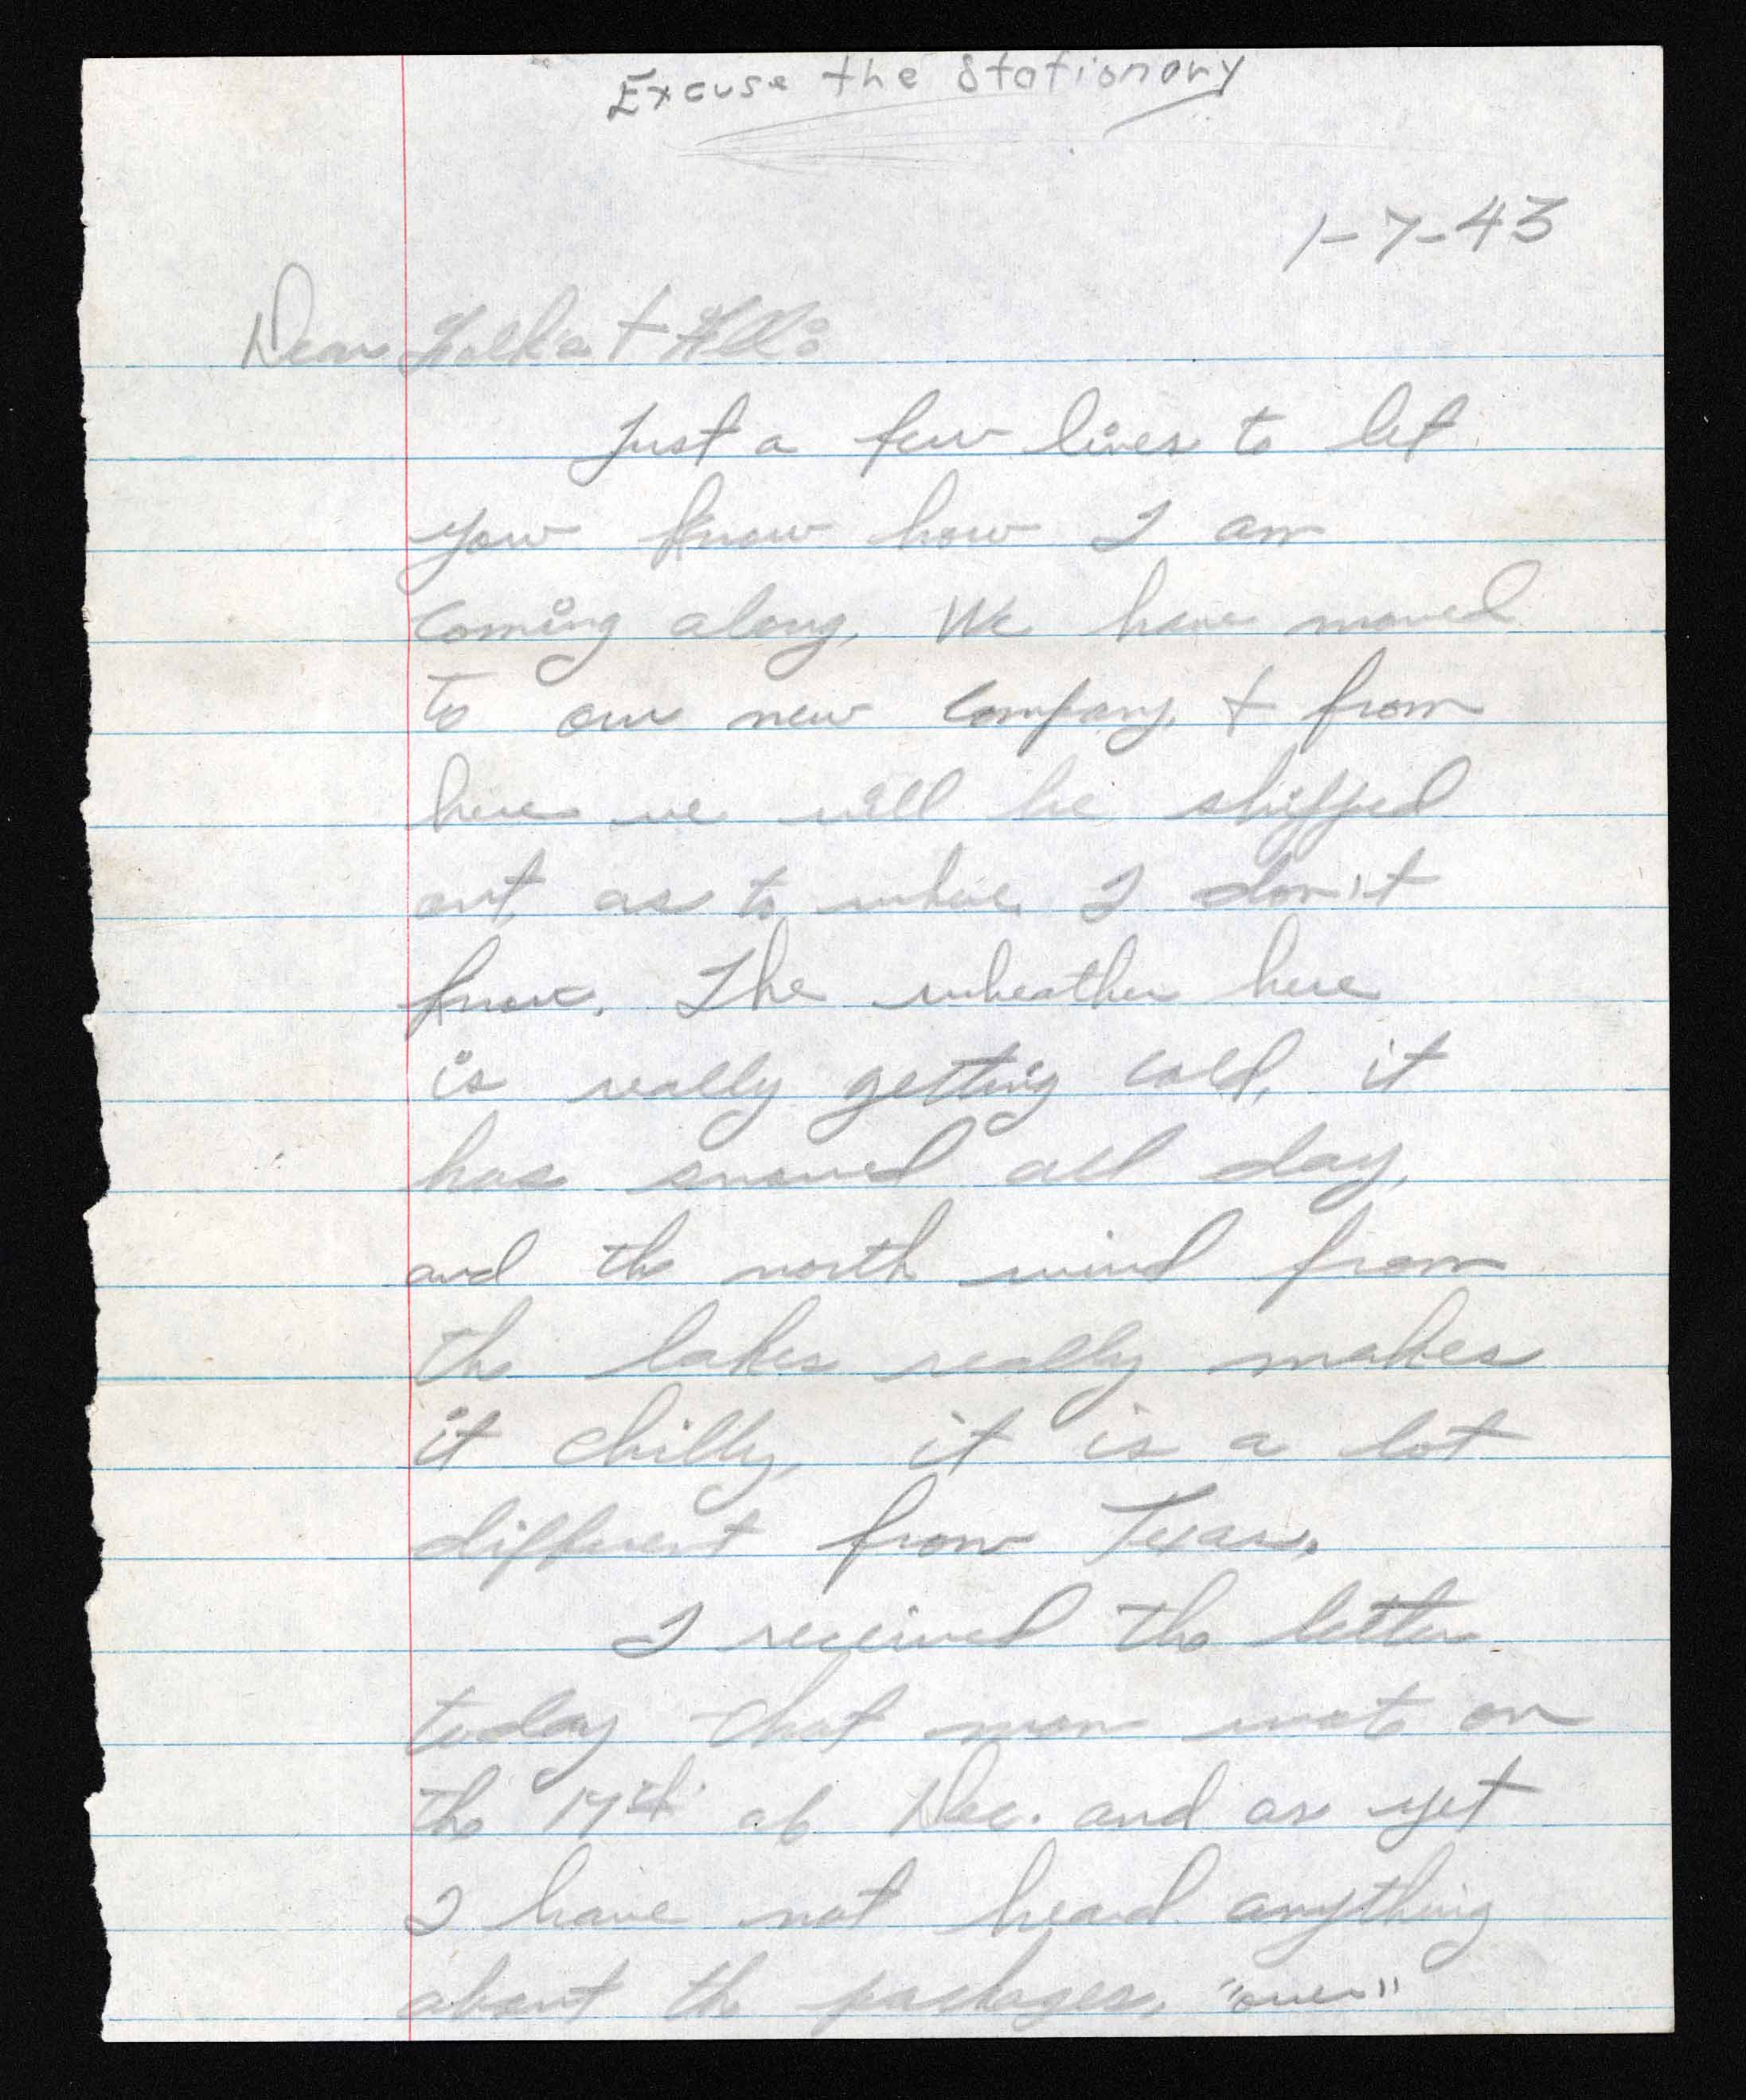 Excuse the Stationary
1-7-43
Dear Folks + All:
Just a few lines to let
you know how I am
coming along, We have moved
to our new Company, + from
here we will be shipped
out, as to where I don't
know. The wheather here
is really getting cold, it
has snowed all day,
and the north wind from
the lakes really makes
it chilly, it is a lot
different from Texas.
I received the letter
today that mom wrote on
the 17th of Dec. and as yet
I have not heard anything
about the packages. "over"